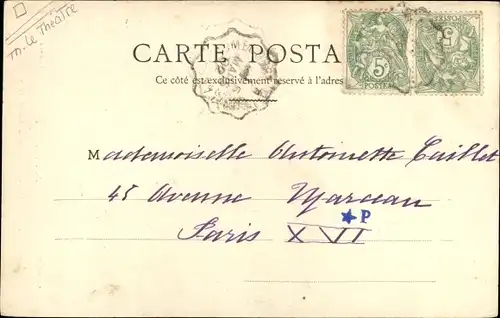 Th. Le Théâtre
CARTE POSTA
Ce côté est exclusivement réservé à l'adres
5c
POSTES
Mademoiselle Antoinette Caillet
45 Avenue Marceau
P
Paris XVI